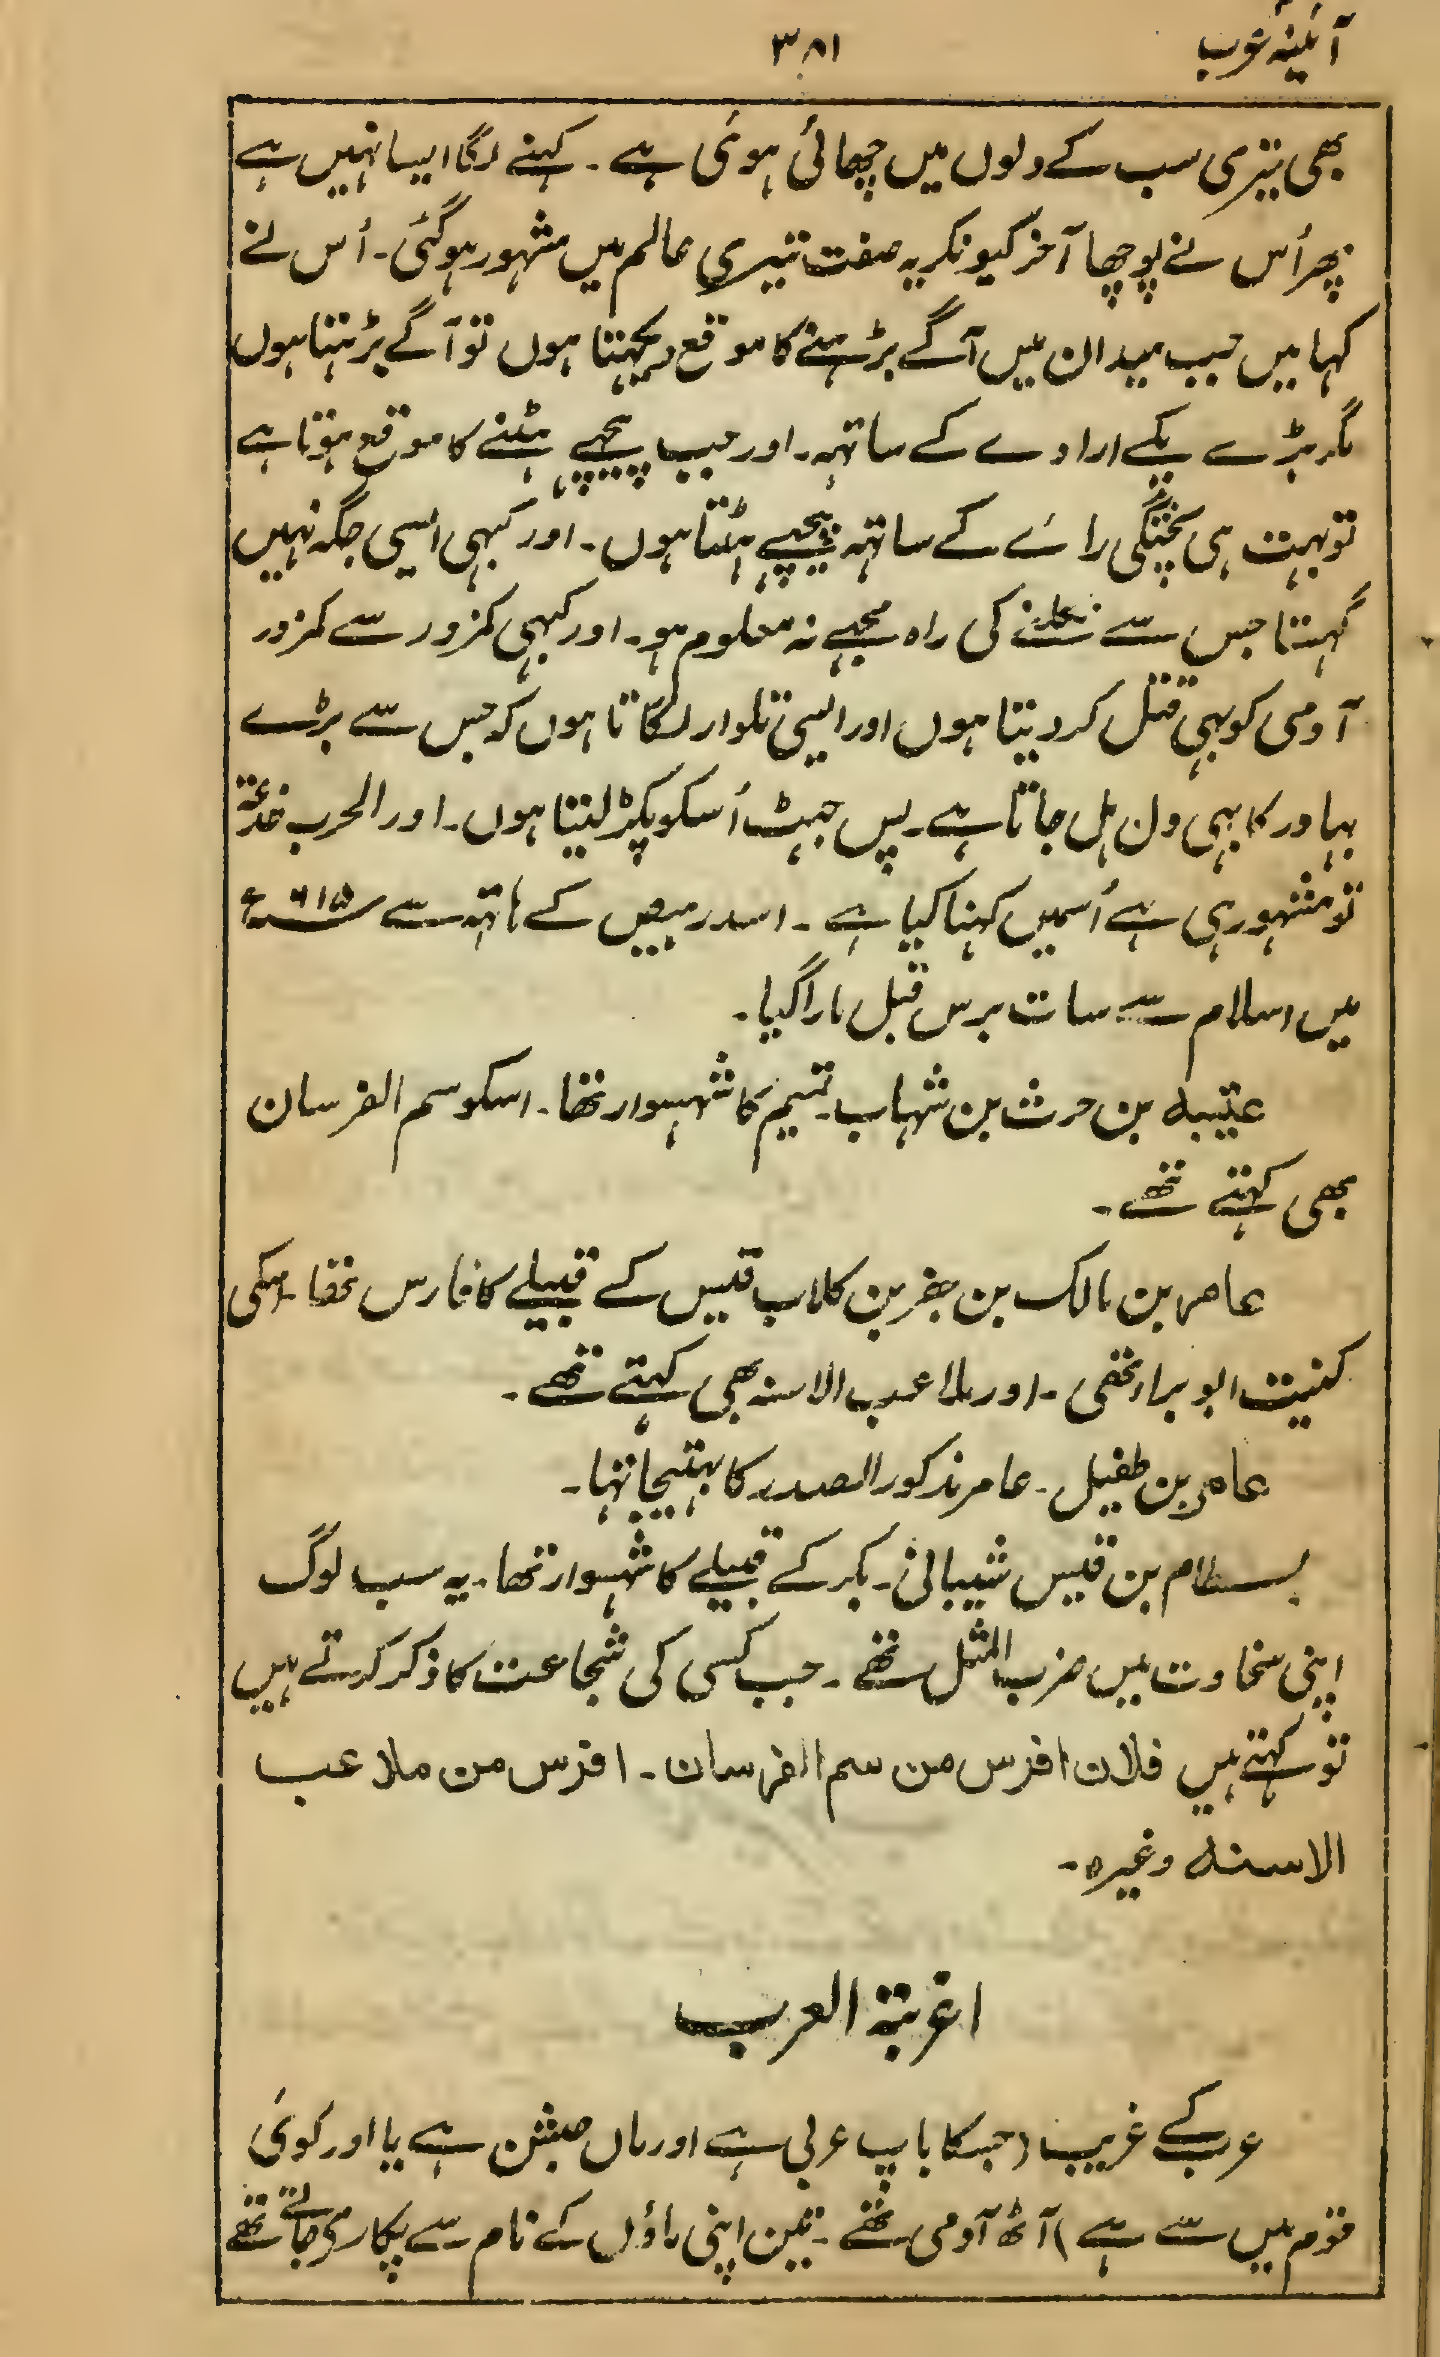 آئینۂ عرب
۳۸۱
بھی تیری سب کے دلوں میں چھائی ہوئی ہے ۔ کہنے لگا ایسا نہیں ہے
پھر اُس نے پوچھا آخر کیونکر یہ صفت تیری عالم میں مشہور ہو گئی ۔ اُس نے
کہا میں جب میدان میں آگے بڑہنے کا موقع دیکہتا ہوں تو آگے بڑہتا ہوں
مگر بڑے پکے ارادے کے ساتہہ ۔ اور جب پیچہے ہٹنے کا موقع ہوتا ہے
تو بہت ہی پختگی رائے کے ساتہہ پیچہے ہٹتا ہوں ۔ اور کبہی ایسی جگہ نہیں
گہستا جس سے نکلنے کی راہ مجہے نہ معلوم ہو ۔ اور کبہی کمزور سے کمزور
آدمی کو بہی قتل کر دیتا ہوں اور ایسی تلوار لگاتا ہوں کہ جس سے بڑے
بہادر کا بہی دل ہل جاتا ہے ۔ پس جہٹ اُسکو پکڑ لیتا ہوں ۔ اور الحرب خدعۃ
تو مشہور ہی ہے اُسمیں کہنا کیا ہے ۔ اسد رہیص کے ہاتہہ سے ۶۱۵ء
میں اسلام سے سات برس قبل مارا گیا ۔
عتیبہ بن حرث بن شہاب ۔ تمیم کا شہسوار تھا ۔ اسکو سم الفرسان
بھی کہتے تھے ۔
عامر بن مالک بن جعفر بن کلاب قیس کے قبیلے کا فارس تھا ۔ اسکی
کنیت ابو براء تھی ۔ اور ملاعب الاسنہ بھی کہتے تھے ۔
عامر بن طفیل ۔ عامر مذکور الصدر کا بہتیجا تہا ۔
بسطام بن قیس شیبانی ۔ بکر کے قبیلے کا شہسوار تھا ۔ یہ سب لوگ
اپنی سخاوت میں ضرب المثل تھے ۔ جب کسی کی شجاعت کا ذکر کرتے ہیں
تو کہتے ہیں فلان افرس من سم الفرسان ۔ افرس من ملاعب
الاسنہ وغیرہ ۔
اغربۃ العرب
عرب کے غریب (جسکا باپ عربی ہے اور ماں حبشن ہے یا اور کوئی
قوم میں سے ہے) آٹھ آدمی تھے ۔ تین اپنی ماؤں کے نام سے پکارے جاتے تھے